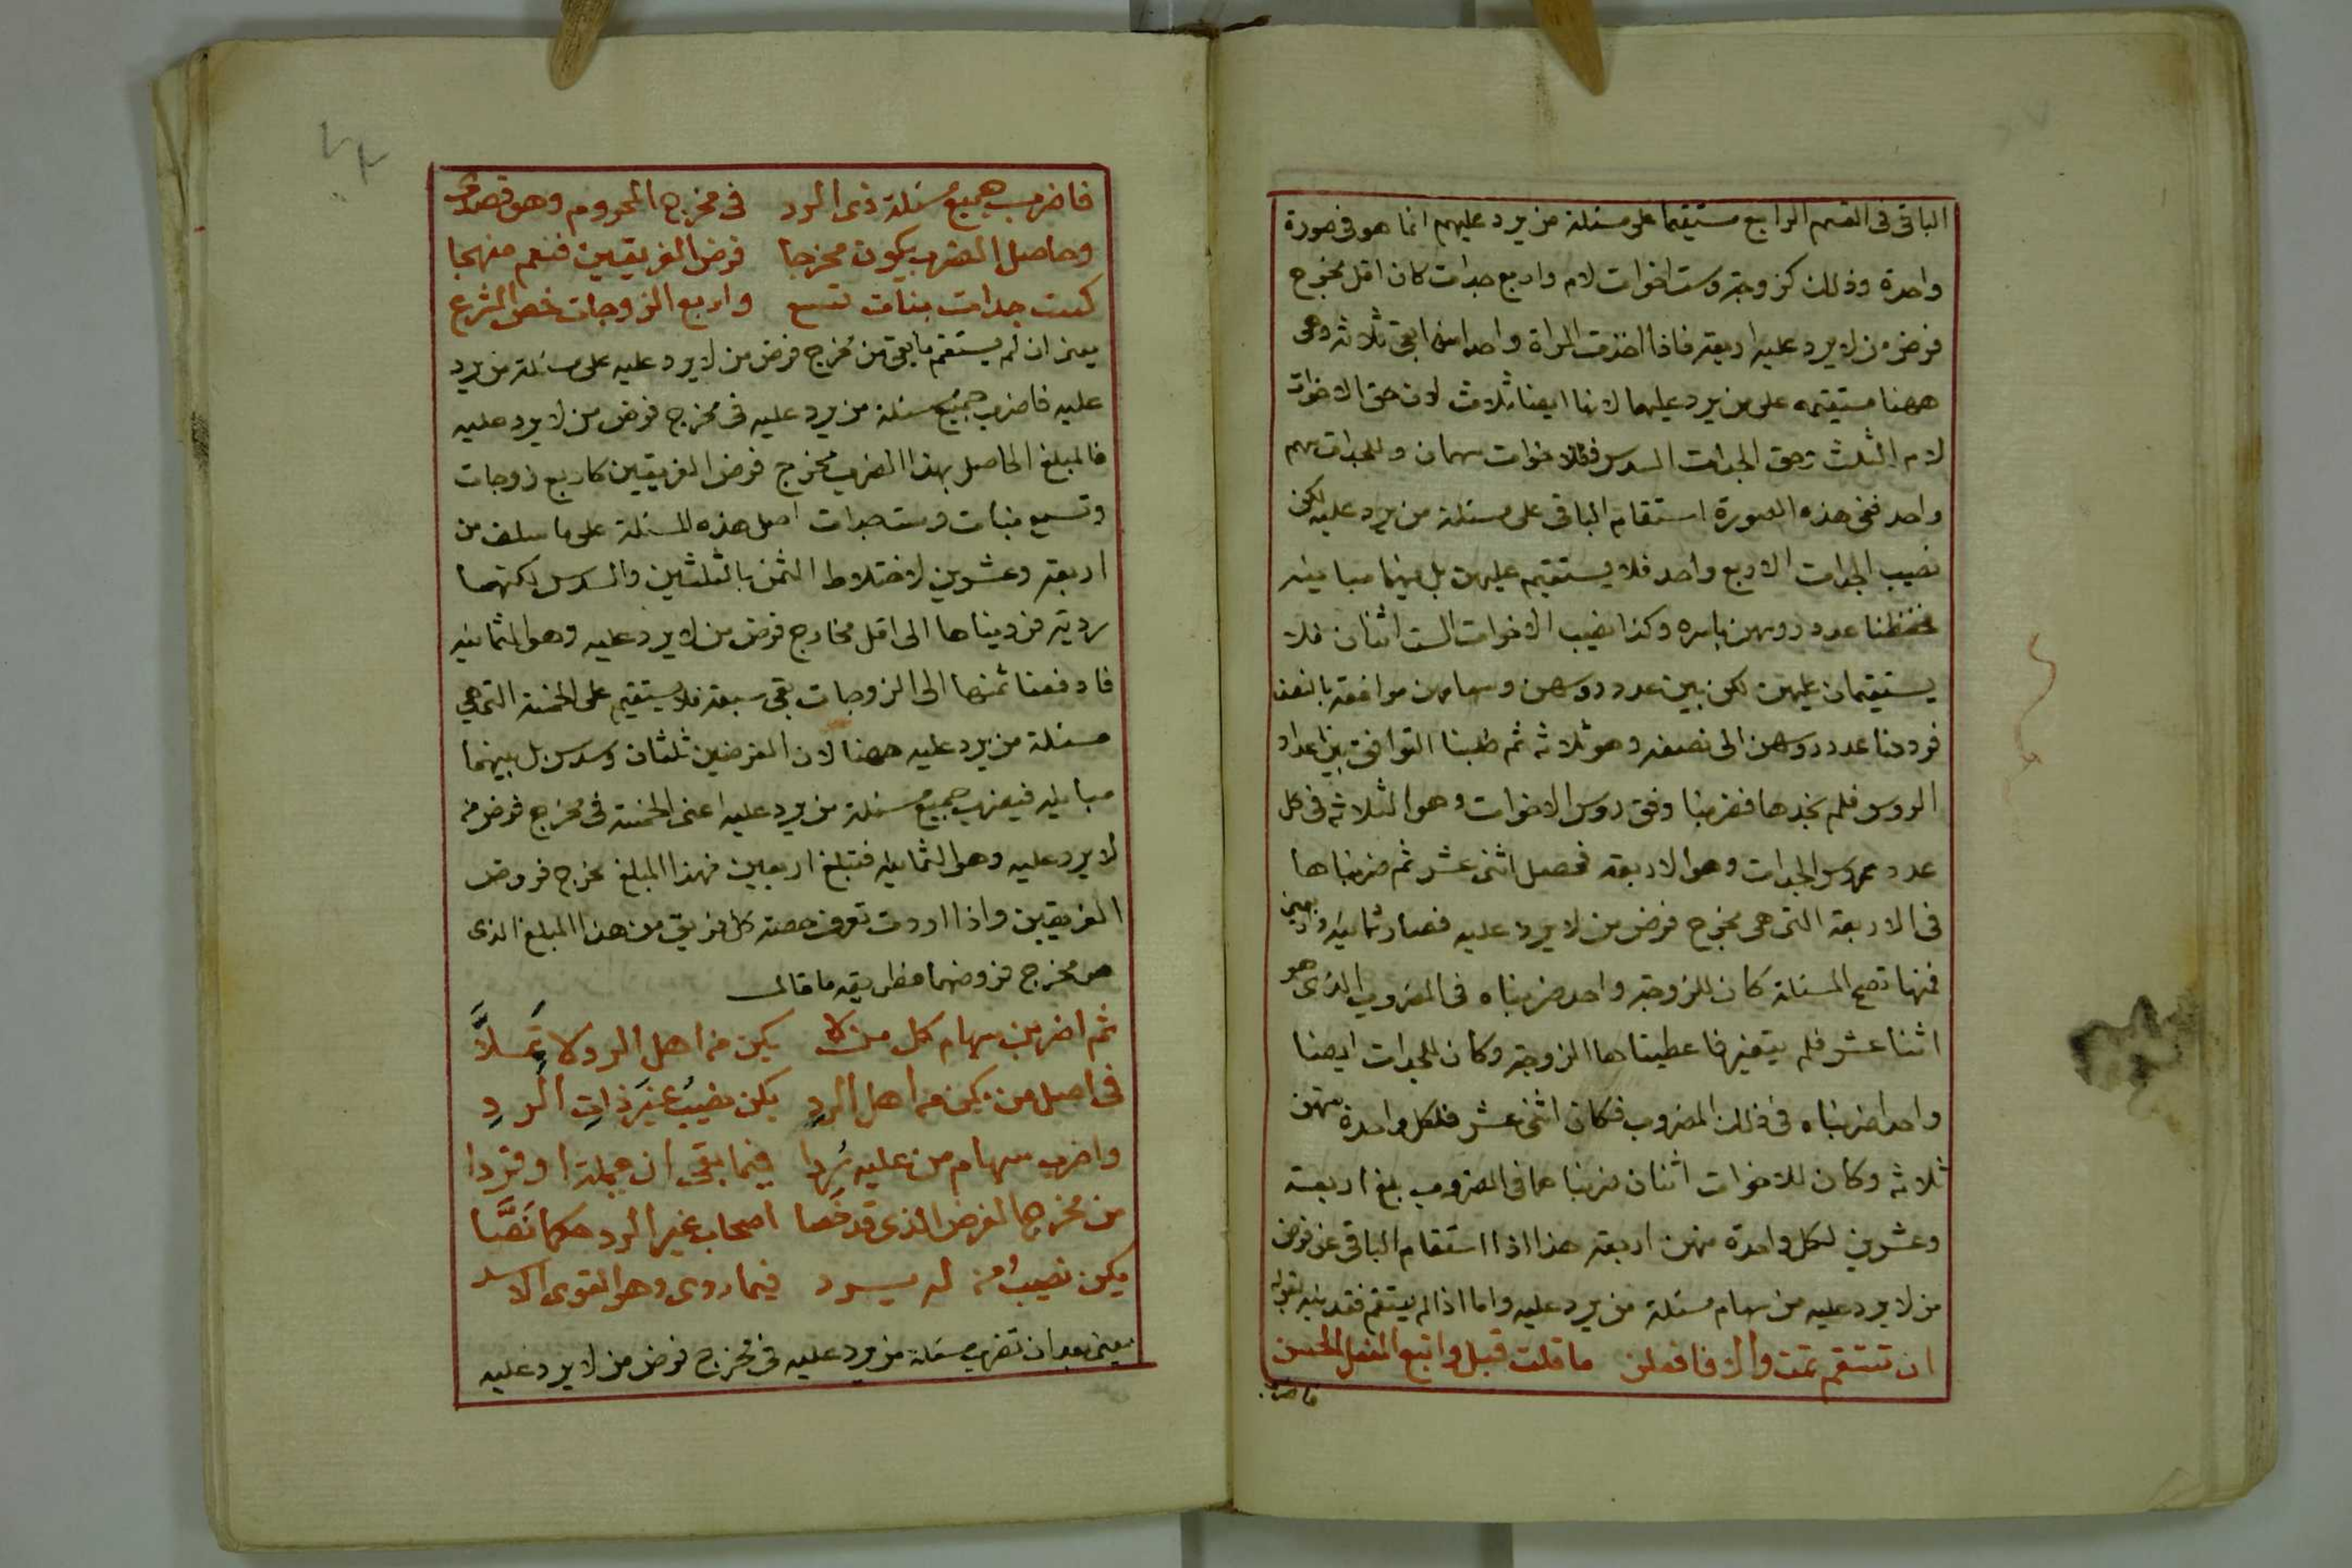 الباقى فى القسم الرابع مستقيما على مسئلة من يرد عليهم انما هو فى صورة
واحدة وذلك كزوجة وست اخوات لام واربع جدات كان اقل مخرج
فرض من لا يرد عليه اربعة فاذا اخذت المراة واحدا منها بقى ثلاثة وهى
ههنا مستقيمة على من يرد عليهما لانها ايضا ثلاث لان حق الاخوات
لام الثلث وحق الجدات السدس فللاخوات سهمان وللجدات سهم
واحد ففى هذه الصورة استقام الباقى على مسئلة من يرد عليه لكن
نصيب الجدات الاربع واحد فلا يستقيم عليهن بل بينهما مباينه
فحفظنا عدد روسهن باسره وكذا نصيب الاخوات الست اثنان فلا
يستقيمان عليهن لكن بين عدد روسهن وسهامهن موافقة بالنصف
فرددنا عدد روسهن الى نصفه وهو ثلاثه ثم طلبنا التوافق بين اعداد
الروس فلم نجدها فضربنا وفق روس الاخوات وهو الثلاثه فى كل
عدد روس الجدات وهو الاربعه فحصل اثنى عشر ثم ضربناها
فى الاربعة التى هى مخرج فرض من لا يرد عليه فصار ثمانيه واربعين
فمنها تصح المسئلة كان للزوجة واحد ضربناه فى المضروب الذى هو
اثنا عشر فلم يتغير فاعطيناها الزوجة وكان للجدات ايضا
واحد ضربناه فى ذلك المضروب فكان اثنى عشر فلكل واحدة منهن
ثلاثه وكان للاخوات اثنان ضربناهما فى المضروب بلغ اربعة
وعشرين لكل واحدة منهن اربعة هذا اذا استقام الباقى عن فرض
من لا يرد عليه من سهام مسئلة من يرد عليه واما اذا لم يستقم فقد بينه بقوله
ان تستقم تمت والا فافعلن ما قلت قبل واتبع الفعل الحسن
فاضرب
فاضرب جميع مسئلة ذى الرد فى مخرج المحروم وهو قصدى
وحاصل الضرب يكون مخرجا فرض الفريقين فنعم منهجا
كست جدات بنات تسع واربع الزوجات خص الشرع
يعنى ان لم يستقم ما بقى من مخرج فرض من لا يرد عليه على مسئلة من يرد
عليه فاضرب جميع مسئلة من يرد عليه فى مخرج فرض من لا يرد عليه
فالمبلغ الحاصل بهذا الضرب مخرج فرض الفريقين كاربع زوجات
وتسع بنات وست جدات اصل هذه المسئلة على ما سلف من
اربعة وعشرين لاختلاط الثمن بالثلثين والسدس لكنها
ردية فرديناها الى اقل مخارج فرض من لا يرد عليه وهو الثمانيه
فاذا دفعنا ثمنها الى الزوجات بقى سبعة فلا يستقيم على الخمسة التى هى
مسئلة من يرد عليه ههنا لان الفرضين ثلثان وسدس بل بينهما
مباينه فيضرب جميع مسئلة من يرد عليه اعنى الخمسة فى مخرج فرض من
لا يرد عليه وهو الثمانيه فتبلغ اربعين فهذا المبلغ مخرج فروض
الفريقين واذا اردت تعرف حصة كل فريق من هذا المبلغ الذى
هو مخرج فروضهما فطريقه ما قال
ثم اضربن سهام كل من لا يكن من اهل الرد لا تملا
فى اصل من يكن من اهل الرد يكن نصيب غير ذات الرد
واضرب سهام من عليه ردا فيما بقى ان جملة او فردا
من مخرج الفرض الذى قد خصا اصحاب غير الرد حكما نصا
يكن نصيب من له يرد فيما روى وهو القوى الاسد
يعنى بعد ان تضرب مسئلة من يرد عليه فى مخرج فرض من لا يرد عليه